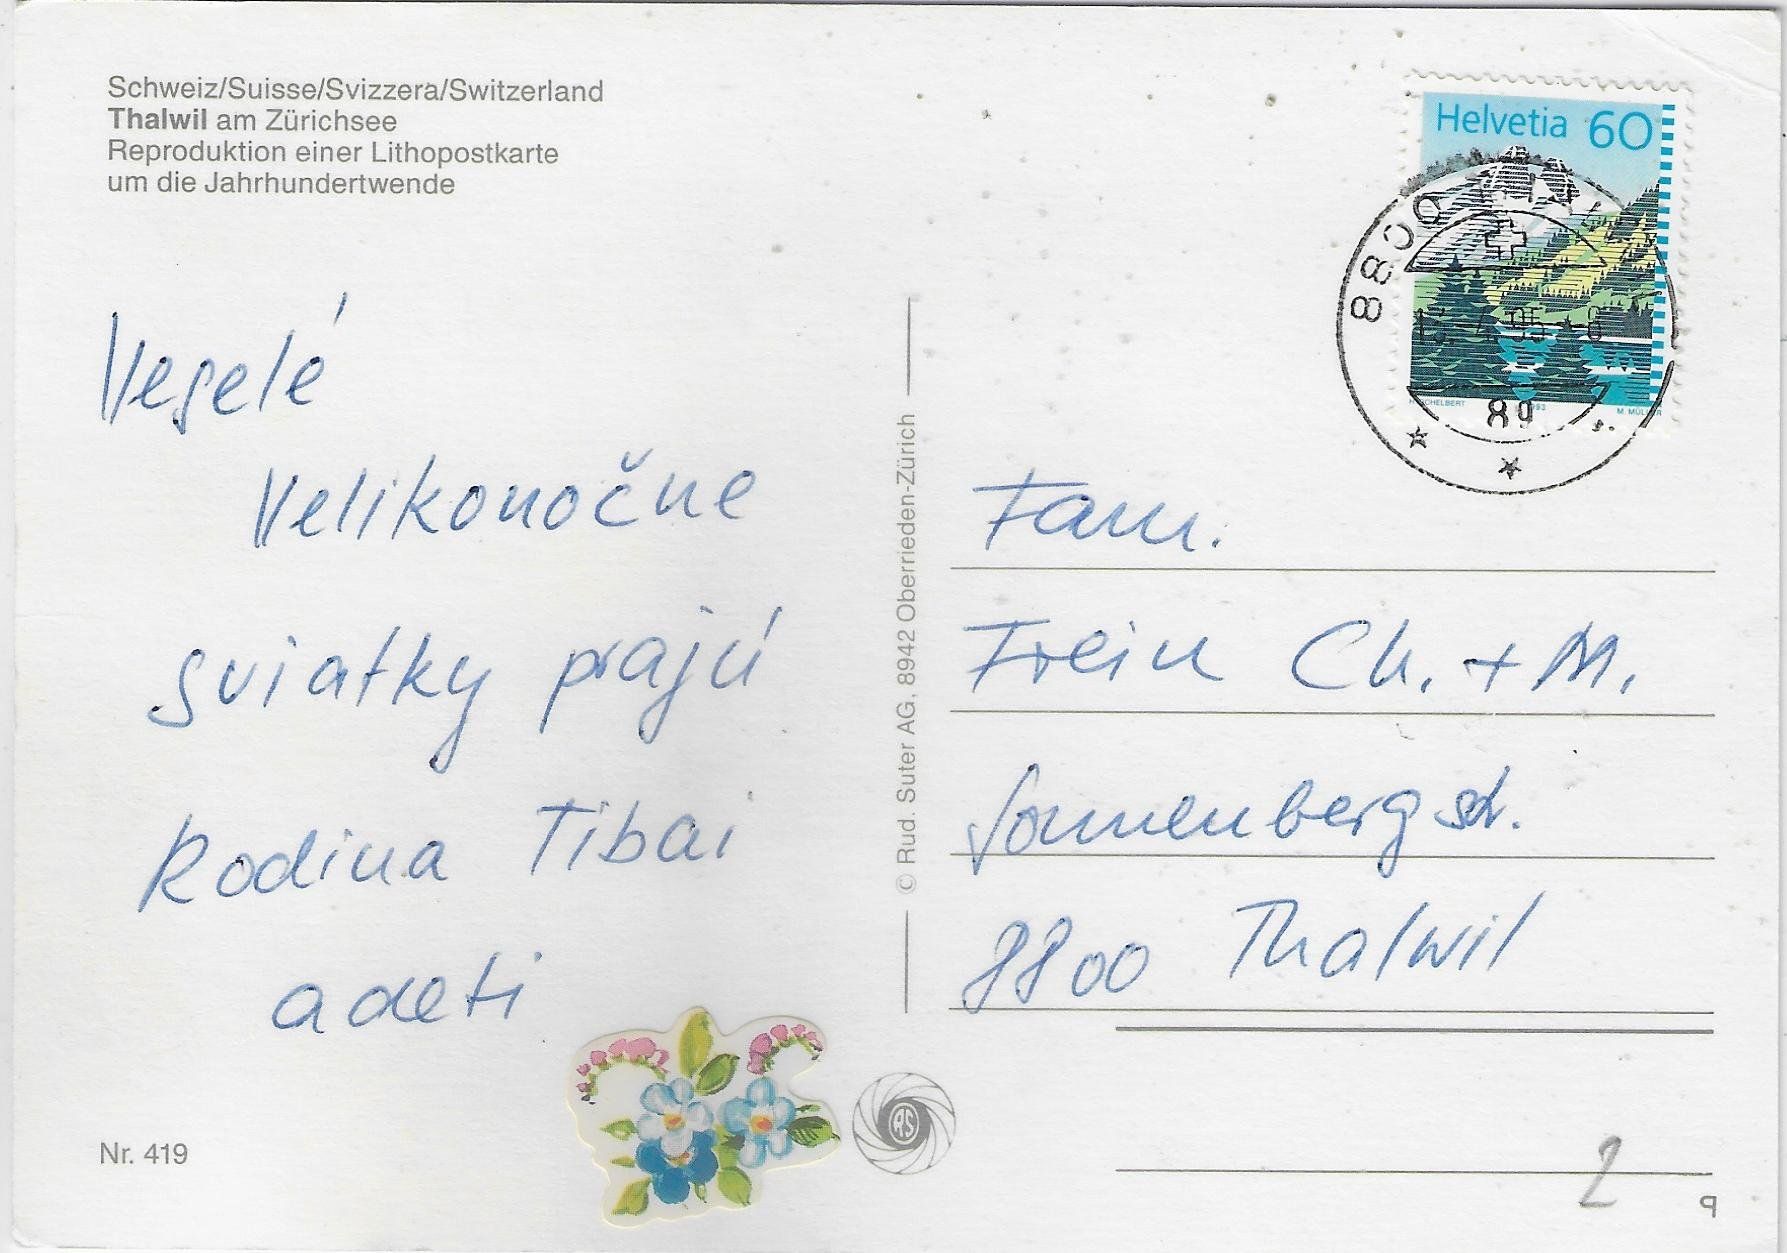 Schweiz/Suisse/Svizzera/Switzerland
Thalwil am Zürichsee
Reproduktion einer Lithopostkarte
um die Jahrhundertwende
Helvetia 60
8800
95-8
M. MÜLLER
89
Veselé
Velikonočne
sviatky prajú
Rodina Tibai
a deti
© Rud. Suter AG. 8942 Oberrieden-Zürich
Fam.
Frein Ch. + M.
Sonnenbergstr.
8800 Thalwil
RS
Nr. 419
2
9